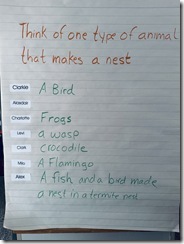 Think of one type of animal
that makes a nest
Clarkie A Bird
Alasdair
Charlotte Frogs
Levi a wasp
Clark crocodile
Milo A Flamingo
Alex A fish and a bird made
a nest in a termite nest